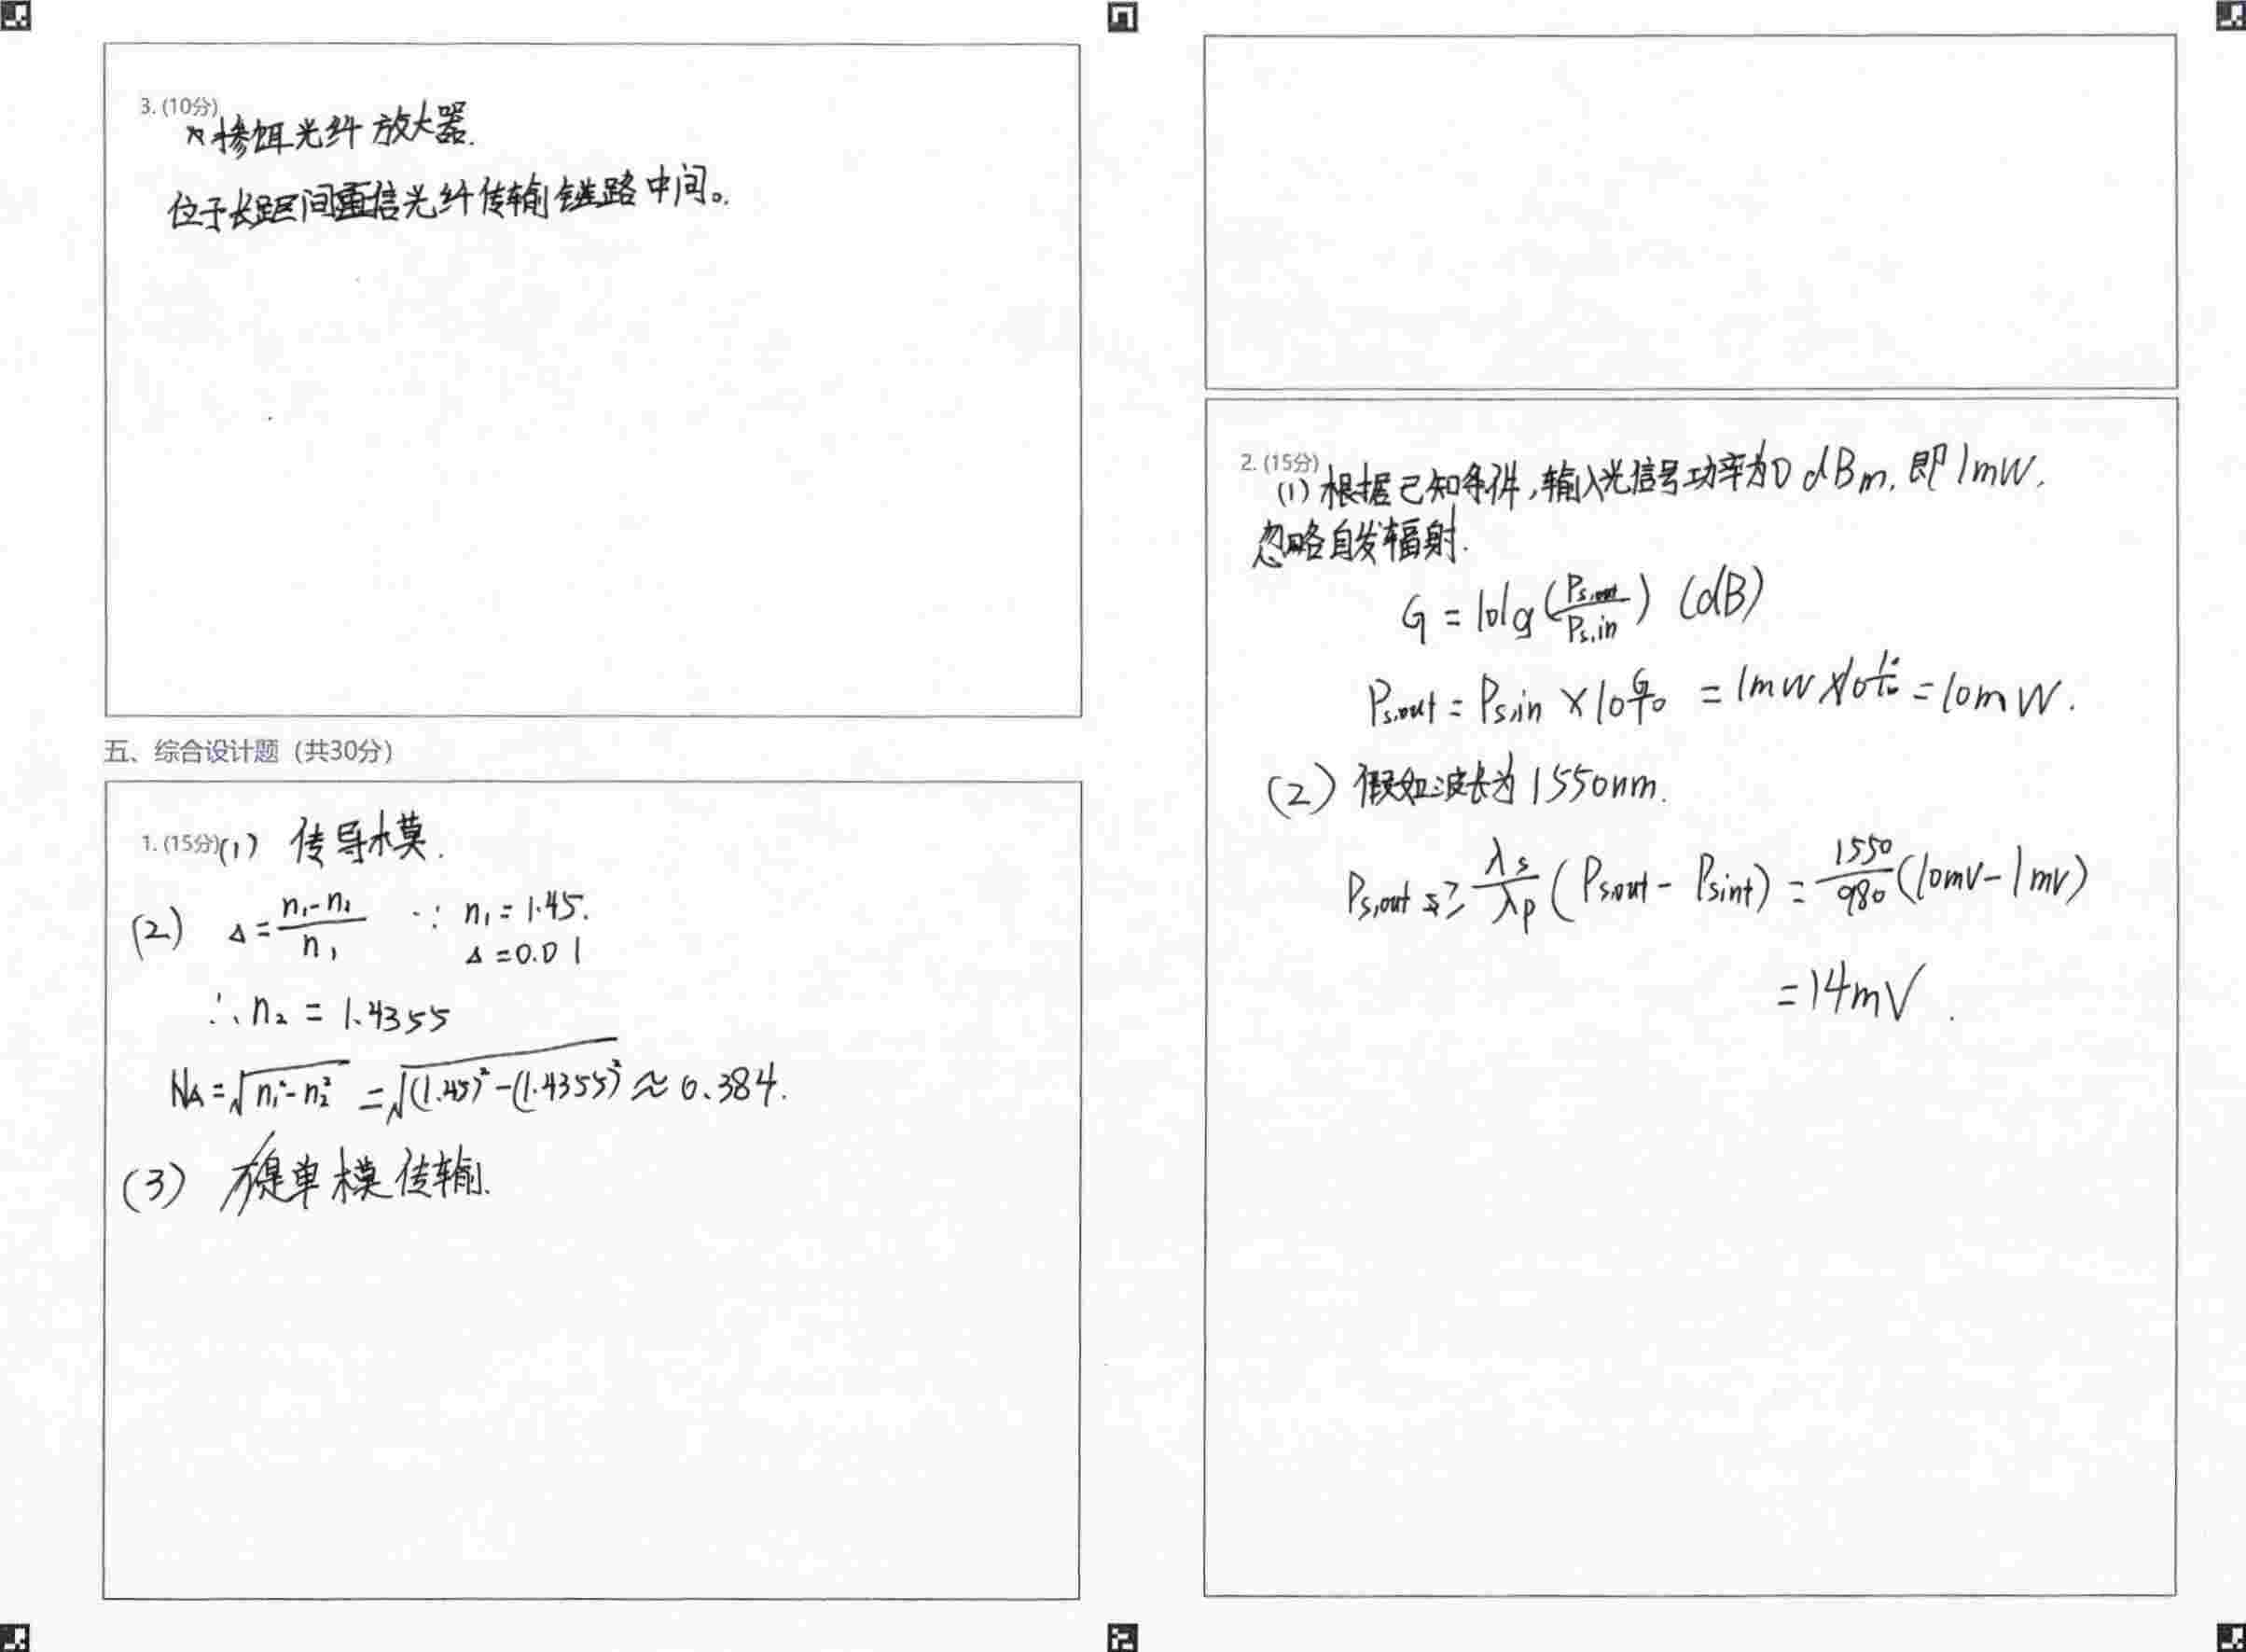 3. (10分)
掺饵光纤放大器.
位于长距区间重信光纤传输链路中间。
五、综合设计题（共30分）
1. (15分) (1) 传导模.
(2) Δ = (n₁-n₂)/n₁ ∵ n₁ = 1.45.
Δ = 0.01
∴ n₂ = 1.4355
NA = √(n₁² - n₂²) = √((1.45)² - (1.4355)²) ≈ 0.384.
(3) 不是单模传输.
2. (15分)
(1) 根据已知条件，输入光信号功率为0 dBm. 即1mW.
忽略自发辐射.
G = 10lg(Ps,out/Ps,in) (dB)
Ps,out = Ps,in × 10^(G/10) = 1mW × 10^(10/10) = 10mW.
(2) 假如波长为1550nm.
Ps,out ≥ λs/λp (Ps,out - Psint) = 1550/980 (10mV - 1mV)
= 14mV.